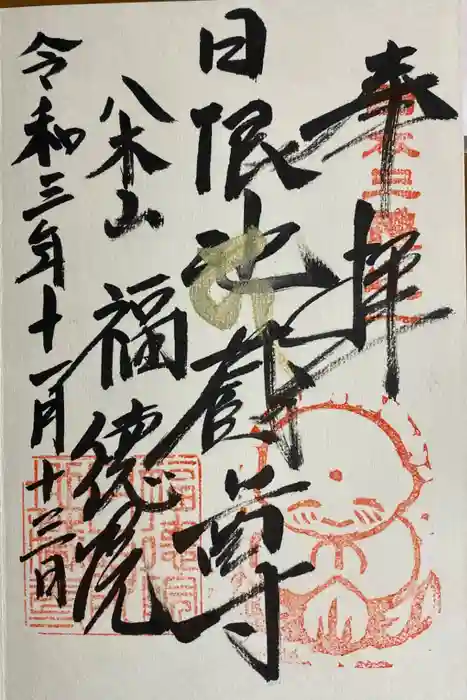 奉拝
日限地蔵尊
八木山
福徳院
令和三年十一月十三日